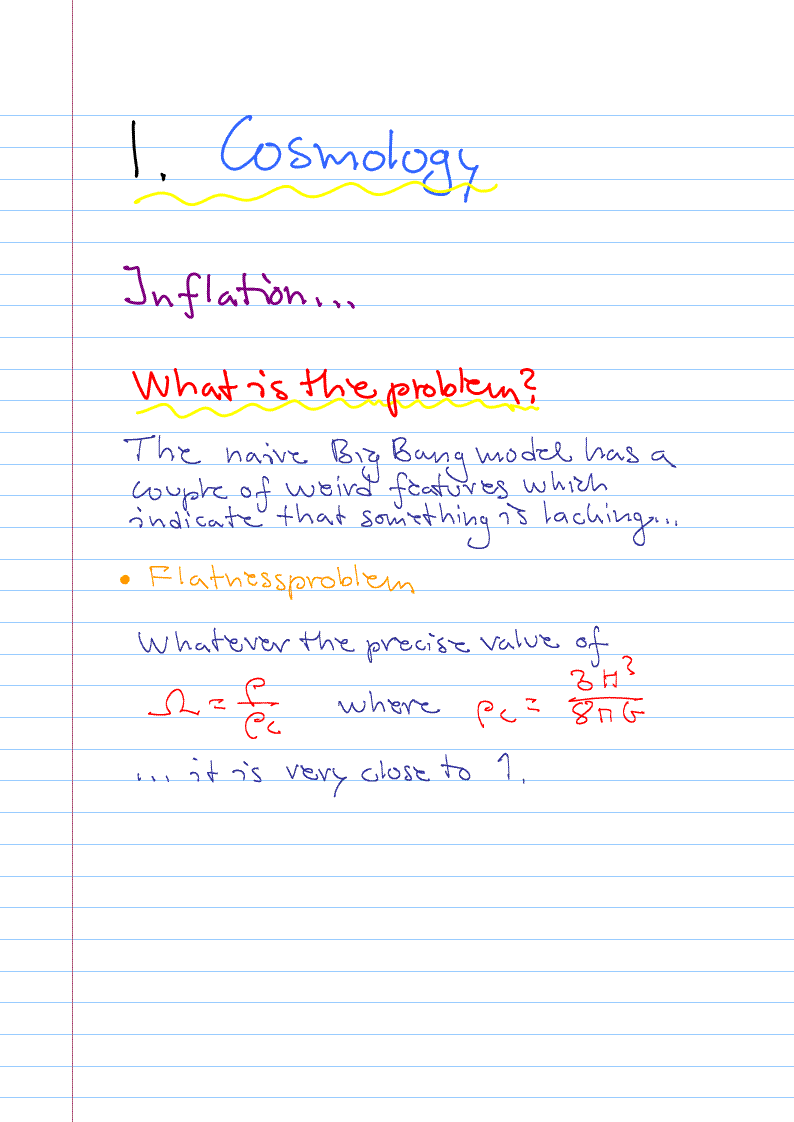 1. Cosmology
Inflation...
What is the problem?
The naive Big Bang model has a
couple of weird features which
indicate that something is lacking...
• Flatnessproblem
Whatever the precise value of
Ω = ρ/ρc where ρc = 3H³/8πG
... it is very close to 1.